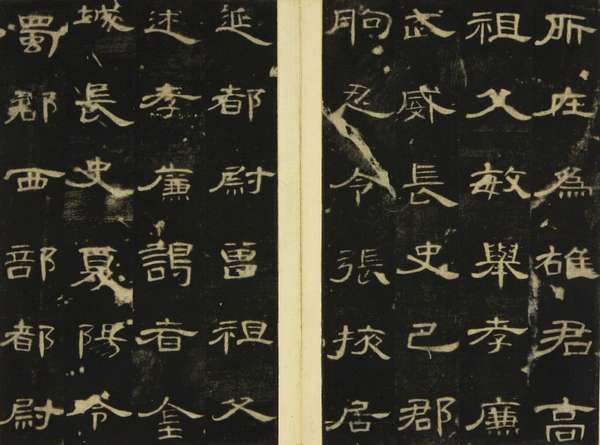 所在為雄君高
祖父敏舉孝廉
武威長史巴郡
朐忍令張掖居
延都尉曾祖父
述孝廉謁者金
城長史夏陽令
蜀郡西部都尉